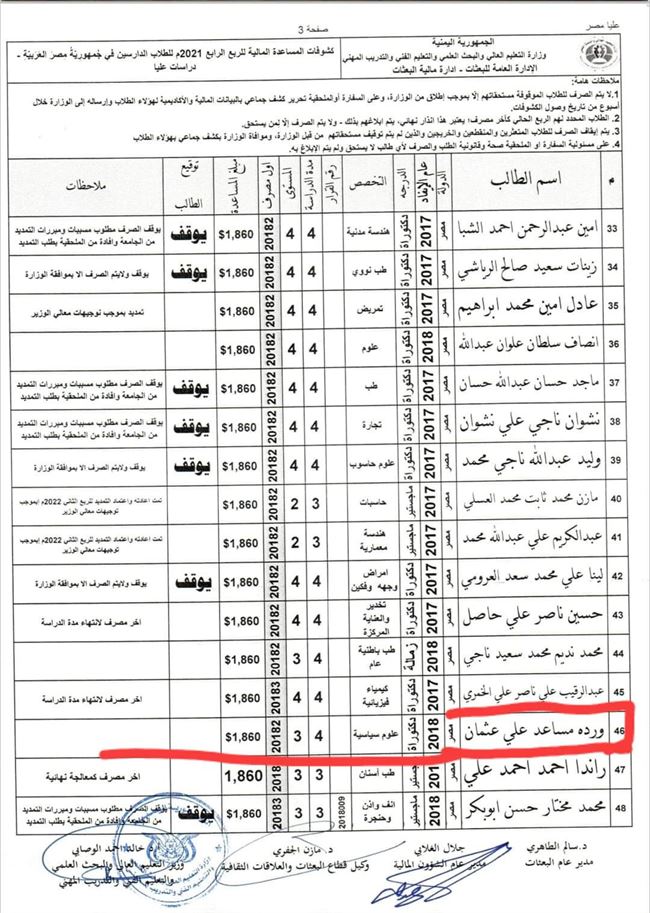 عليا مصر
صفحة 3
الجمهورية اليمنية
وزارة التعليم العالي والبحث العلمي والتعليم الفني والتدريب المهني
الإدارة العامة للبعثات - ادارة مالية البعثات
كشوفات المساعدة المالية للربع الرابع 2021م للطلاب الدارسين في جُمهوريَةُ مصرَ العَرَبيَة - دراسات عليا
ملاحظات هامة:
1.لا يتم الصرف للطلاب الموقوفة مستحقاتهم إلا بموجب إطلاق من الوزارة، وعلى السفارة أوالملحقية تحرير كشف جماعي بالبيانات المالية والأكاديمية لهؤلاء الطلاب وإرساله إلى الوزارة خلال
أسبوع من تاريخ وصول الكشوفات.
2. الطلاب المحدد لهم الربع الحالي كآخر مصرف؛ يعتبر هذا انذار نهائي، يتم ابلاغهم بذلك - ولا يتم الصرف إلا لمن يستحق.
3. يتم إيقاف الصرف للطلاب المتعثرين والمنقطعين والخريجين والذين لم يتم توقيف مستحقاتهم من قبل الوزارة، وموافاة الوزارة بكشف جماعي بهؤلاء الطلاب
4. على مسئولية السفارة او الملحقية صحة وقانونية الطلب والصرف لأي طالب لا يستحق ولم يتم الإبلاغ به.
م اسم الطالب الدولة عام الإيفاد الدرجه التخصص رقم القرار مدة الدراسة المستوى اول مصرف مبلغ المساعدة توقيع الطالب ملاحظات
33 امين عبدالرحمن احمد الشبا مصر 2017 دكتوراة هندسة مدنية 4 4 20182 $1,860 يوقف يوقف الصرف مطلوب مسببات ومبررات التمديد من الجامعة وافادة من الملحقية بطلب التمديد
34 زينات سعيد صالح الرياشي مصر 2017 دكتوراة طب نووي 4 4 20182 $1,860 يوقف يوقف ولايتم الصرف الا بموافقة الوزارة
35 عادل امين محمد ابراهيم مصر 2017 دكتوراة تمريض 4 4 20182 $1,860 تمديد بموجب توجيهات معالي الوزير
36 انصاف سلطان علوان عبدالله مصر 2018 دكتوراة علوم 4 4 20182 $1,860
37 ماجد حسان عبدالله حسان مصر 2017 دكتوراة طب 4 4 20182 $1,860 يوقف يوقف الصرف مطلوب مسببات ومبررات التمديد من الجامعة وافادة من الملحقية بطلب التمديد
38 نشوان ناجي علي نشوان مصر 2017 دكتوراة تجارة 4 4 20182 $1,860 يوقف يوقف الصرف مطلوب مسببات ومبررات التمديد من الجامعة وافادة من الملحقية بطلب التمديد
39 وليد عبدالله ناجي محمد مصر 2017 دكتوراة علوم حاسوب 4 4 20182 $1,860 يوقف يوقف ولايتم الصرف الا بموافقة الوزارة
40 مازن محمد ثابت محمد العسلي مصر 2017 ماجستير حاسبات 3 2 20182 $1,860 تمت اعادته واعتماد التمديد للربع الثاني 2022م بموجب توجيهات معالي الوزير
41 عبدالكريم علي عبدالله محمد مصر 2017 ماجستير هندسة معمارية 3 2 20182 $1,860 تمت اعادته واعتماد التمديد للربع الثاني 2022م بموجب توجيهات معالي الوزير
42 لينا علي محمد سعد العرومي مصر 2017 دكتوراة امراض وجهه وفكين 4 4 20182 $1,860 يوقف يوقف ولايتم الصرف الا بموافقة الوزارة
43 حسين ناصر علي حاصل مصر 2017 دكتوراة تخدير والعناية المركزة 4 4 20182 $1,860 اخر مصرف لانتهاء مدة الدراسة
44 محمد نديم محمد سعيد ناجي مصر 2018 زمالة طب باطنية عام 4 3 20182 $1,860
45 عبدالرقيب علي ناصر علي الخمري مصر 2017 دكتوراة كيمياء فيزيائية 4 4 20183 $1,860 اخر مصرف لانتهاء مدة الدراسة
46 ورده مساعد علي عثمان مصر 2018 دكتوراة علوم سياسية 4 3 20182 $1,860
47 راندا احمد احمد علي مصر طب أسنان 3 3 2018 1,860 اخر مصرف كمعالجة نهائية
48 محمد مختار حسن ابوبكر مصر 2018 ماجستير انف واذن وحنجرة 2018009 3 3 20183 $1,860 يوقف يوقف الصرف مطلوب مسببات ومبررات التمديد من الجامعة وافادة من الملحقية بطلب التمديد
د.سالم الطاهري
مدير عام البعثات
جلال الغلابي
مدير عام الشؤون المالية
د. مازن الجفري
وكيل قطاع البعثات والعلاقات الثقافية
د خالد احمد الوصابي
وزير التعليم العالي والبحث العلمي
والتعليم الفني والتدريب المهني